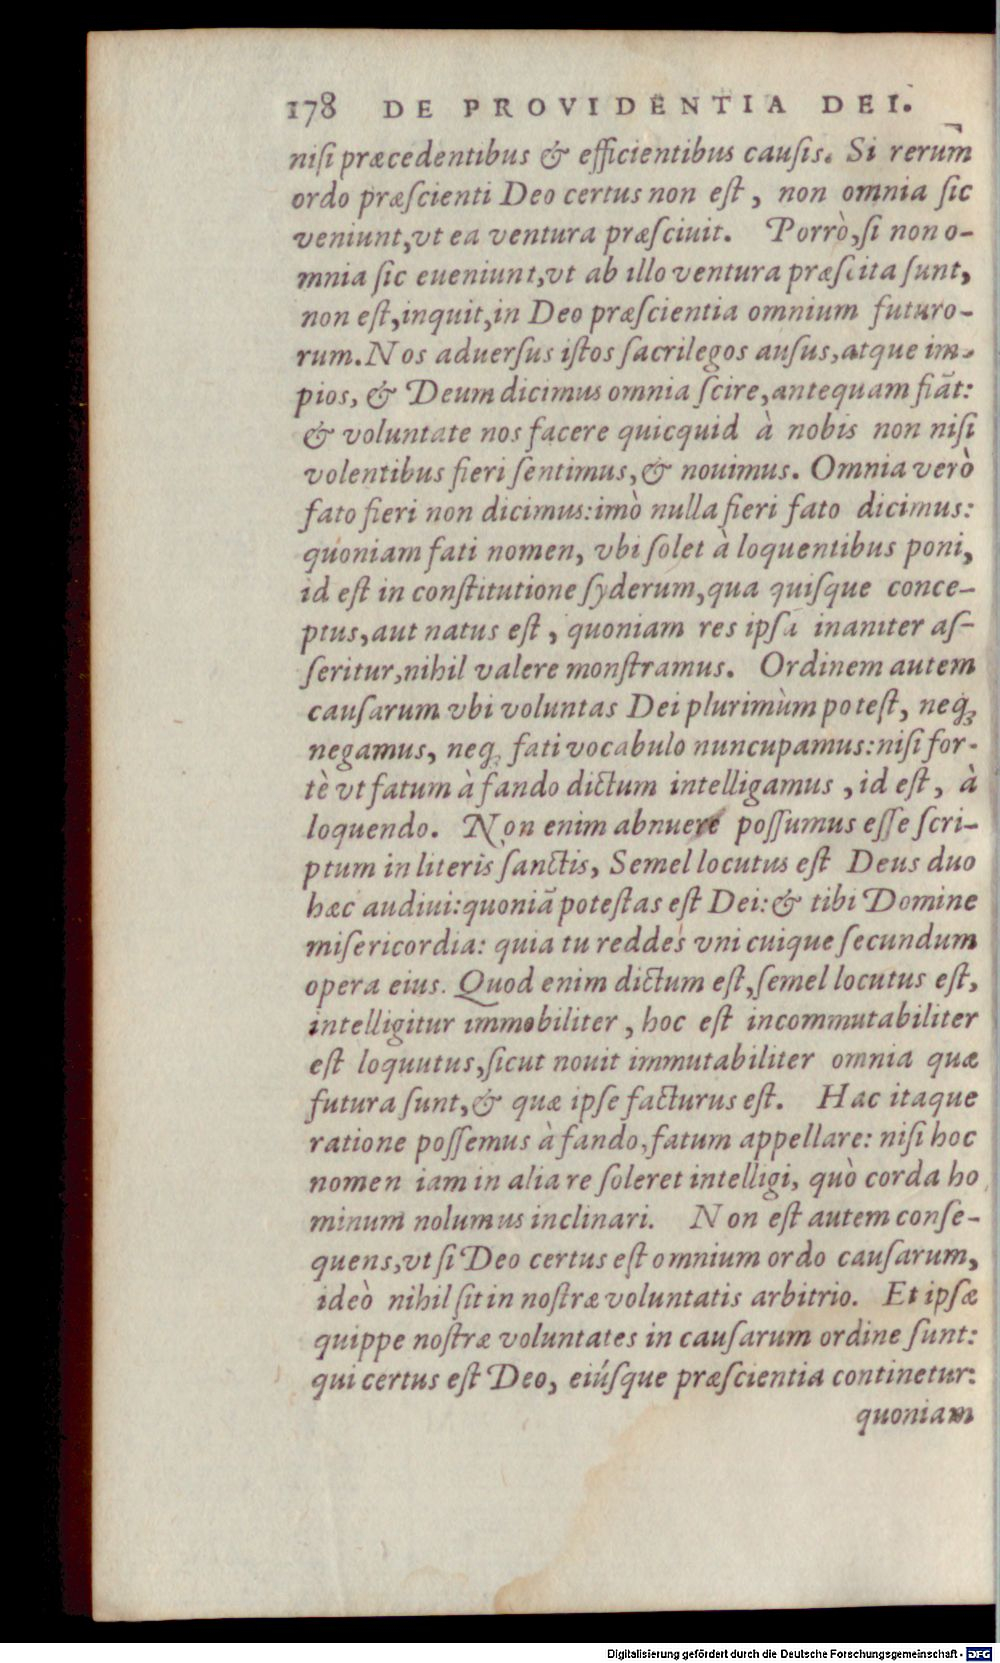 178 DE PROVIDENTIA DEI.
niſi præcedentibus & efficientibus cauſis. Si rerum
ordo præſcienti Deo certus non eſt, non omnia ſic
veniunt, vt ea ventura præſciuit. Porrò, ſi non o-
mnia ſic eueniunt, vt ab illo ventura præſcita ſunt,
non eſt, inquit, in Deo præſcientia omnium futuro-
rum. Nos aduerſus iſtos ſacrilegos auſus, atque im-
pios, & Deum dicimus omnia ſcire, antequam fiãt:
& voluntate nos facere quicquid à nobis non niſi
volentibus fieri ſentimus, & nouimus. Omnia verò
fato fieri non dicimus: imò nulla fieri fato dicimus:
quoniam fati nomen, vbi ſolet à loquentibus poni,
id eſt in conſtitutione ſyderum, qua quiſque conce-
ptus, aut natus eſt, quoniam res ipſa inaniter aſ-
ſeritur, nihil valere monſtramus. Ordinem autem
cauſarum vbi voluntas Dei plurimùm poteſt, neq;
negamus, neq; fati vocabulo nuncupamus: niſi for-
tè vt fatum à fando dictum intelligamus, id eſt, à
loquendo. Non enim abnuere poſſumus eſſe ſcri-
ptum in literis ſanctis, Semel locutus eſt Deus duo
hæc audiui: quoniã poteſtas eſt Dei: & tibi Domine
miſericordia: quia tu reddes vnicuique ſecundum
opera eius. Quod enim dictum eſt, ſemel locutus eſt,
intelligitur immobiliter, hoc eſt incommutabiliter
eſt loquutus, ſicut nouit immutabiliter omnia quæ
futura ſunt, & quæ ipſe facturus eſt. Hac itaque
ratione poſſemus à fando, fatum appellare: niſi hoc
nomen iam in alia re ſoleret intelligi, quò corda ho
minum nolumus inclinari. Non eſt autem conſe-
quens, vt ſi Deo certus eſt omnium ordo cauſarum,
ideò nihil ſit in noſtræ voluntatis arbitrio. Et ipſæ
quippe noſtræ voluntates in cauſarum ordine ſunt:
qui certus eſt Deo, eiúſque præſcientia continetur:
quoniam
Digitalisierung gefördert durch die Deutsche Forschungsgemeinschaft - DFG